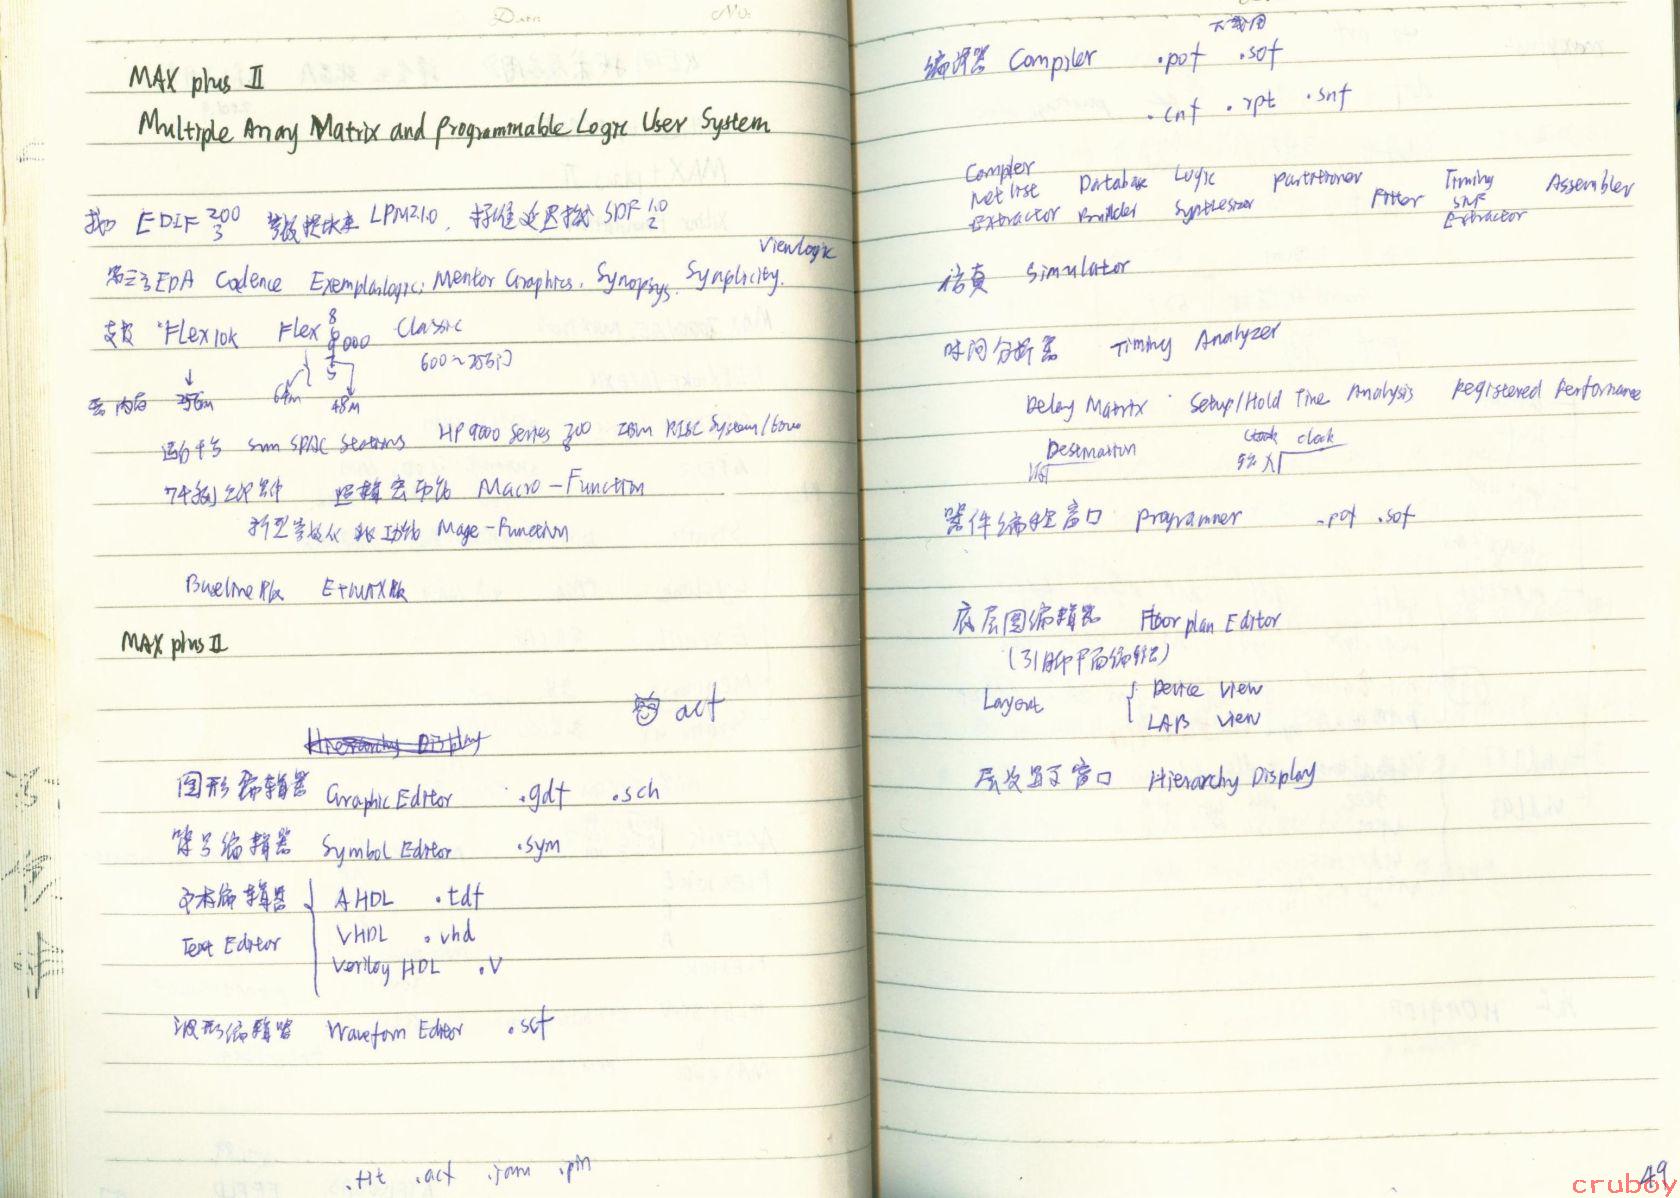 Date No.
MAX plus II
Multiple Array Matrix and Programmable Logic User System
EDIF 200 3 参数模块库 LPM210. 标准延迟格式 SDF 1.0 2
Viewlogic
第三方EDA Cadence Exemplarlogic, Mentor Graphics. Synopsys. Synplicity.
支持 Flex10K Flex 8 9 000 5 Classic
600~25万门
内存 256m 64m 48m
Sun SPAC Stations HP 9000 Series 700 8 IBM RISC System/6000
74系列 逻辑宏功能 Macro-Function
新型参数化 功能 Mage-Function
Baseline版 E+MAX版
MAX plus II
act
图形编辑器 Graphic Editor .gdf .sch
符号编辑器 Symbol Editor .sym
文本编辑器 AHDL .tdf
Text Editor VHDL .vhd
Verilog HDL .V
波形编辑器 Waveform Editor .scf
.hit .act .jam .pin
下载用
编译器 Compiler .pof .sof
.cnf .rpt .snf
Compler Netlist Extractor Database Builder Logic Synthesizer Partitioner Fitter Timing SNF Extractor Assembler
仿真 Simulator
时间分析器 Timing Analyzer
Delay Matrix Setup/Hold Time Analysis Registered Performance
Destination Clock clock
源 输入
器件编程窗口 Programmer .pof .sof
底层图编辑器 Floorplan Editor
(引脚平面编辑)
Layout Device View
LAB View
层次显示窗口 Hierarchy Display
49
cruboy